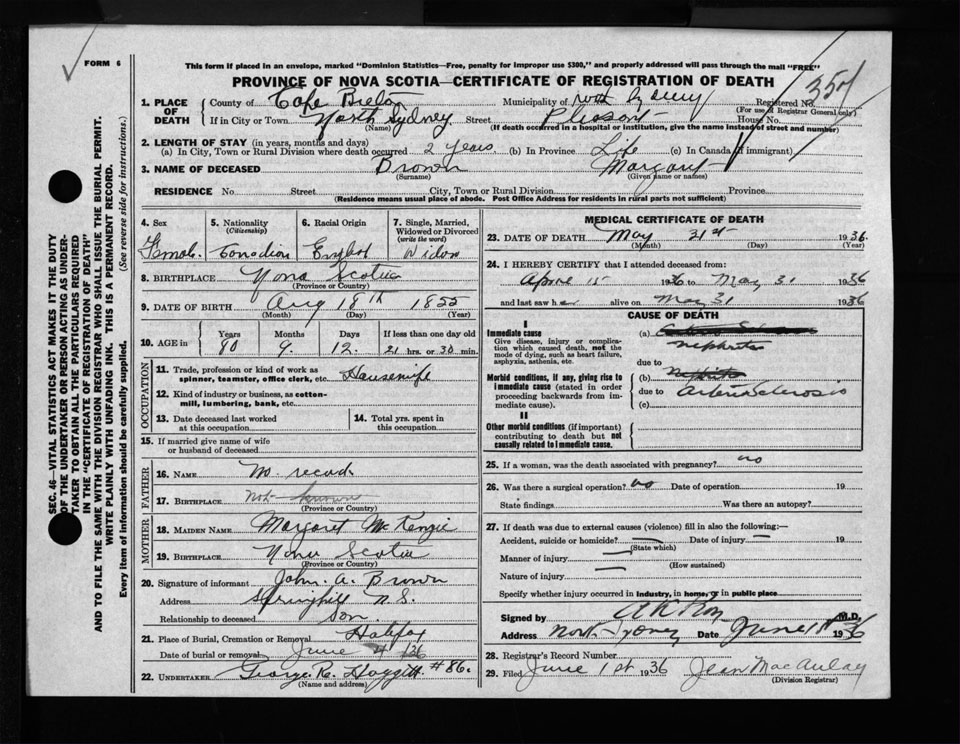 FORM 6
This form if placed in an envelope, marked "Dominion Statistics—Free, penalty for improper use $300," and properly addressed will pass through the mail "FREE"
PROVINCE OF NOVA SCOTIA—CERTIFICATE OF REGISTRATION OF DEATH
1. PLACE OF DEATH County of Cape Breton Municipality of North Sydney Registered No.
(For use of Registrar General only)
If in City or Town North Sydney Street Plesant House No.
(Name) (If death occurred in a hospital or institution, give the name instead of street and number)
2. LENGTH OF STAY (in years, months and days)
(a) In City, Town or Rural Division where death occurred 2 years. (b) In Province Life (c) In Canada (if immigrant)
3. NAME OF DECEASED Brown Margaret
(Surname) (Given name or names)
RESIDENCE No. Street City, Town or Rural Division Province
(Residence means usual place of abode. Post Office Address for residents in rural parts not sufficient)
4. Sex 5. Nationality (Citizenship) 6. Racial Origin 7. Single, Married, Widowed or Divorced (write the word)
Female. Canadian English Widow
8. BIRTHPLACE Nova Scotia
(Province or Country)
9. DATE OF BIRTH Aug 18th 1855
(Month) (Day) (Year)
10. AGE in Years Months Days If less than one day old
80 9. 12. 21 hrs. or 30 min.
OCCUPATION
11. Trade, profession or kind of work as spinner, teamster, office clerk, etc. Housewife
12. Kind of industry or business, as cotton-mill, lumbering, bank, etc.
13. Date deceased last worked at this occupation 14. Total yrs. spent in this occupation
15. If married give name of wife or husband of deceased
FATHER
16. NAME No record
17. BIRTHPLACE Not known
(Province or Country)
MOTHER
18. MAIDEN NAME Margaret McKenzie
19. BIRTHPLACE Nova Scotia
(Province or Country)
20. Signature of informant John. A. Brown
Address Springhill N.S.
Relationship to deceased Son.
21. Place of Burial, Cremation or Removal Halifax
Date of burial or removal June 4 /36
22. UNDERTAKER George R. #86.
(Name and address)
MEDICAL CERTIFICATE OF DEATH
23. DATE OF DEATH May 31st 1936.
(Month) (Day) (Year)
24. I HEREBY CERTIFY that I attended deceased from:
April 15 1936 to May 31 1936
and last saw her alive on May 31 1936
CAUSE OF DEATH
I
Immediate cause (a)
Give disease, injury or complication which caused death, not the mode of dying, such as heart failure, asphyxia, asthenia, etc.
nephritis
due to
Morbid conditions, if any, giving rise to immediate cause (stated in order proceeding backwards from immediate cause).
(b) Nephritis
due to Arterio Sclerosis
(c)
II
Other morbid conditions (if important) contributing to death but not causally related to immediate cause.
25. If a woman, was the death associated with pregnancy? no
26. Was there a surgical operation? no Date of operation 19
State findings Was there an autopsy?
27. If death was due to external causes (violence) fill in also the following:—
Accident, suicide or homicide? — Date of injury — 19
(State which)
Manner of injury —
(How sustained)
Nature of injury —
Specify whether injury occurred in industry, in home, or in public place
Signed by M.D.
Address North Sydney Date June 1st 1936
28. Registrar's Record Number
29. Filed June 1st 1936 Jean MacAulay
(Division Registrar)
SEC. 46—VITAL STATISTICS ACT MAKES IT THE DUTY
OF THE UNDERTAKER OR PERSON ACTING AS UNDER-
TAKER TO OBTAIN ALL THE PARTICULARS REQUIRED
IN THE "CERTIFICATE OF REGISTRATION OF DEATH"
AND TO FILE THE SAME WITH THE DIVISION REGISTRAR WHO SHALL ISSUE THE BURIAL PERMIT.
WRITE PLAINLY WITH UNFADING INK. THIS IS A PERMANENT RECORD.
Every item of information should be carefully supplied. (See reverse side for instructions.)